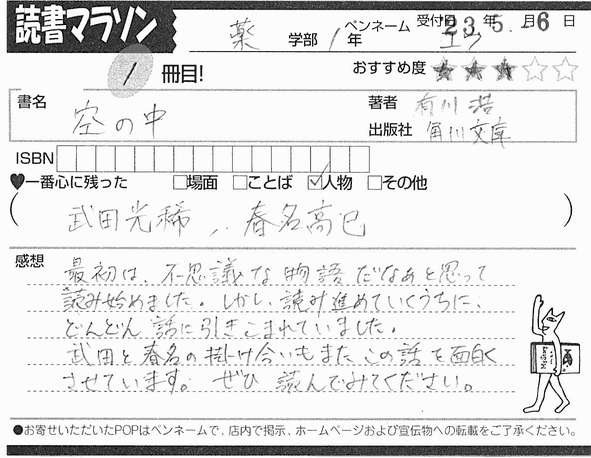 読書マラソン
薬 学部 1 年
ペンネーム ユウ
受付日 23年 5月 -6日
1 冊目!
おすすめ度 ★★★☆☆
書名 空の中
著者 有川 浩
出版社 角川文庫
ISBN
♥一番心に残った □場面 □ことば ☑人物 □その他
( 武田光稀 , 春名高巳 )
感想
最初は、不思議な物語だなあと思って
読み始めました。しかし、読み進めていくうちに、
どんどん話に引きこまれていました。
武田と春名の掛け合いもまたこの話を面白く
させています。ぜひ読んでみてください。
●お寄せいただいたPOPはペンネームで、店内で掲示、ホームページおよび宣伝物への転載をご了承ください。